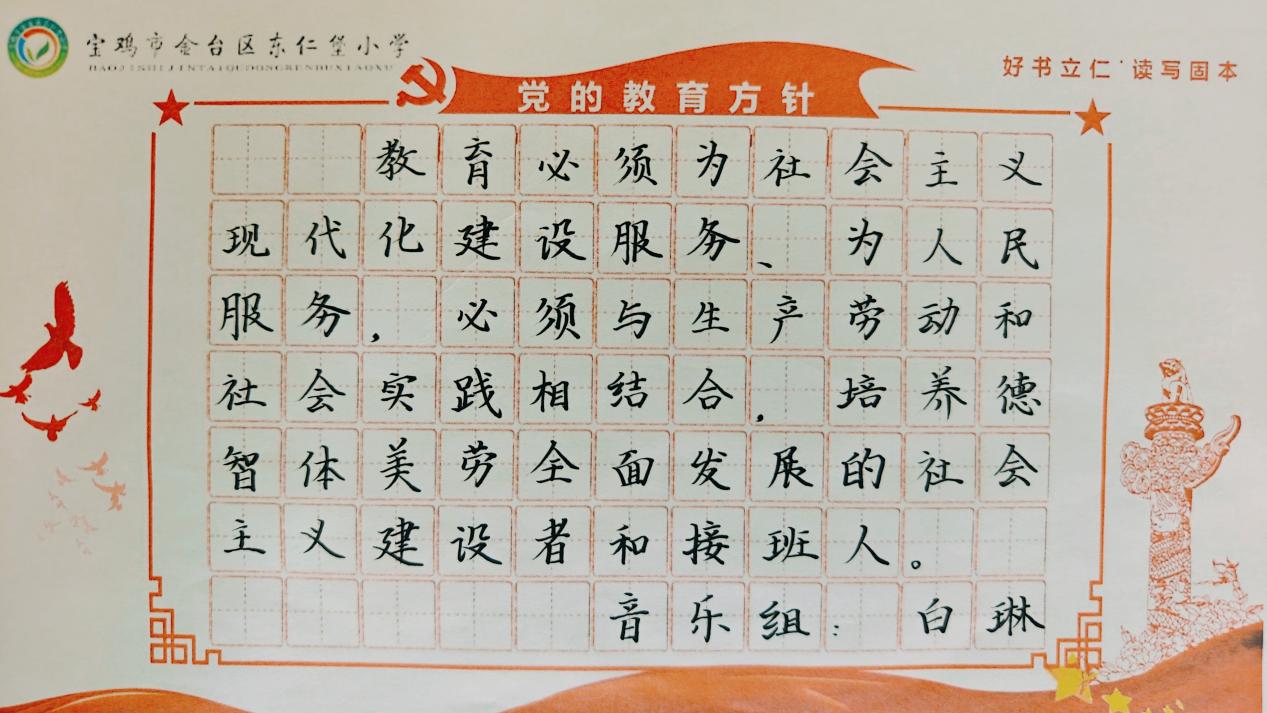 宝鸡市金台区东仁堡小学
BAOJISHIJINTAIQUDONGRENBUXIAOXUE
好书立仁·读写固本
党的教育方针
教育必须为社会主义
现代化建设服务、为人民
服务,必须与生产劳动和
社会实践相结合,培养德
智体美劳全面发展的社会
主义建设者和接班人。
音乐组:白琳